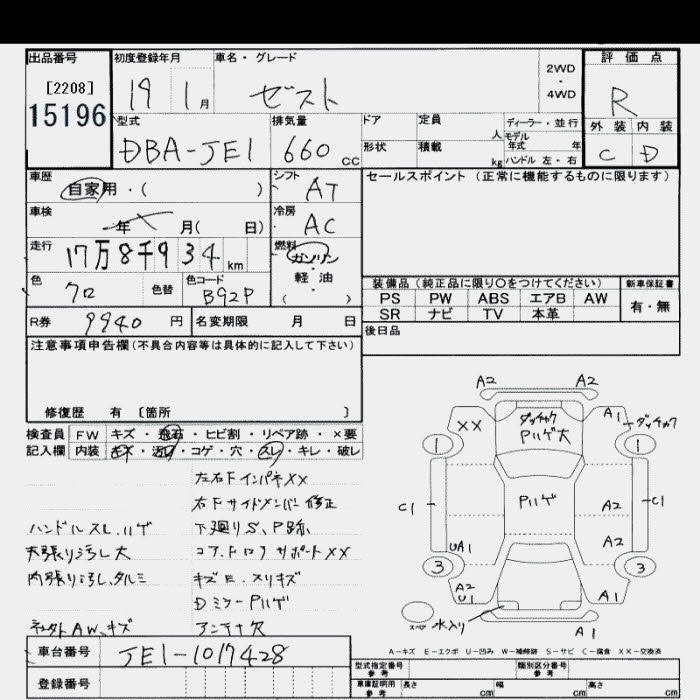 出品番号 初度登録年月 車名・グレード 評価点
[2208]
15196
19 1月 ゼスト 2WD・4WD R
型式 排気量 ドア 定員 人 ディーラー・並行 外装 内装
DBA-JE1 660cc 形状 積載 kg モデル年式 年 ハンドル 左・右 C D
車歴 シフト セールスポイント (正常に機能するものに限ります)
自家用・( ) AT
車検 冷房
年 月( 日) AC
走行 燃料
17万8千934km ガソリン・軽油( )
色 色替 色コード 装備品 (純正品に限り○をつけてください) 新車保証書
クロ B92P PS PW ABS エアB AW 有・無
SR ナビ TV 本革
R券 9940円 名変期限 月 日 後日品
注意事項申告欄(不具合内容等は具体的に記入して下さい)
修復歴 有 〔箇所 〕
検査員 FW キズ・飛石・ヒビ割・リペア跡・×要
記入欄 内装 キズ・汚れ・コゲ・穴・スレ・キレ・破レ
左右FインパネXX
右Fサイドメンバー修正
ハンドルスレ、ハゲ 下廻りS、P跡
天張り汚し大 コア、ドロアサポートXX
内張り汚し、タルミ キズE、スリキズ
DミラーPハゲ
社外AW、キズ アンテナ欠
車台番号 JE1-1017428
登録番号
A2 A2
XX ダッチャク Pハゲ大 A1 ダッチャク
1 1
C1 Pハゲ A2 C1
UA1 A2
3 3
A2 U1
スペア 水入り A1
A-キズ E-エクボ U-凹み W-補修跡 S-サビ C-腐食 XX-交換済
型式指定番号 参考 類別区分番号 参考
車庫証明用 参考 長さ cm 幅 cm 高さ cm